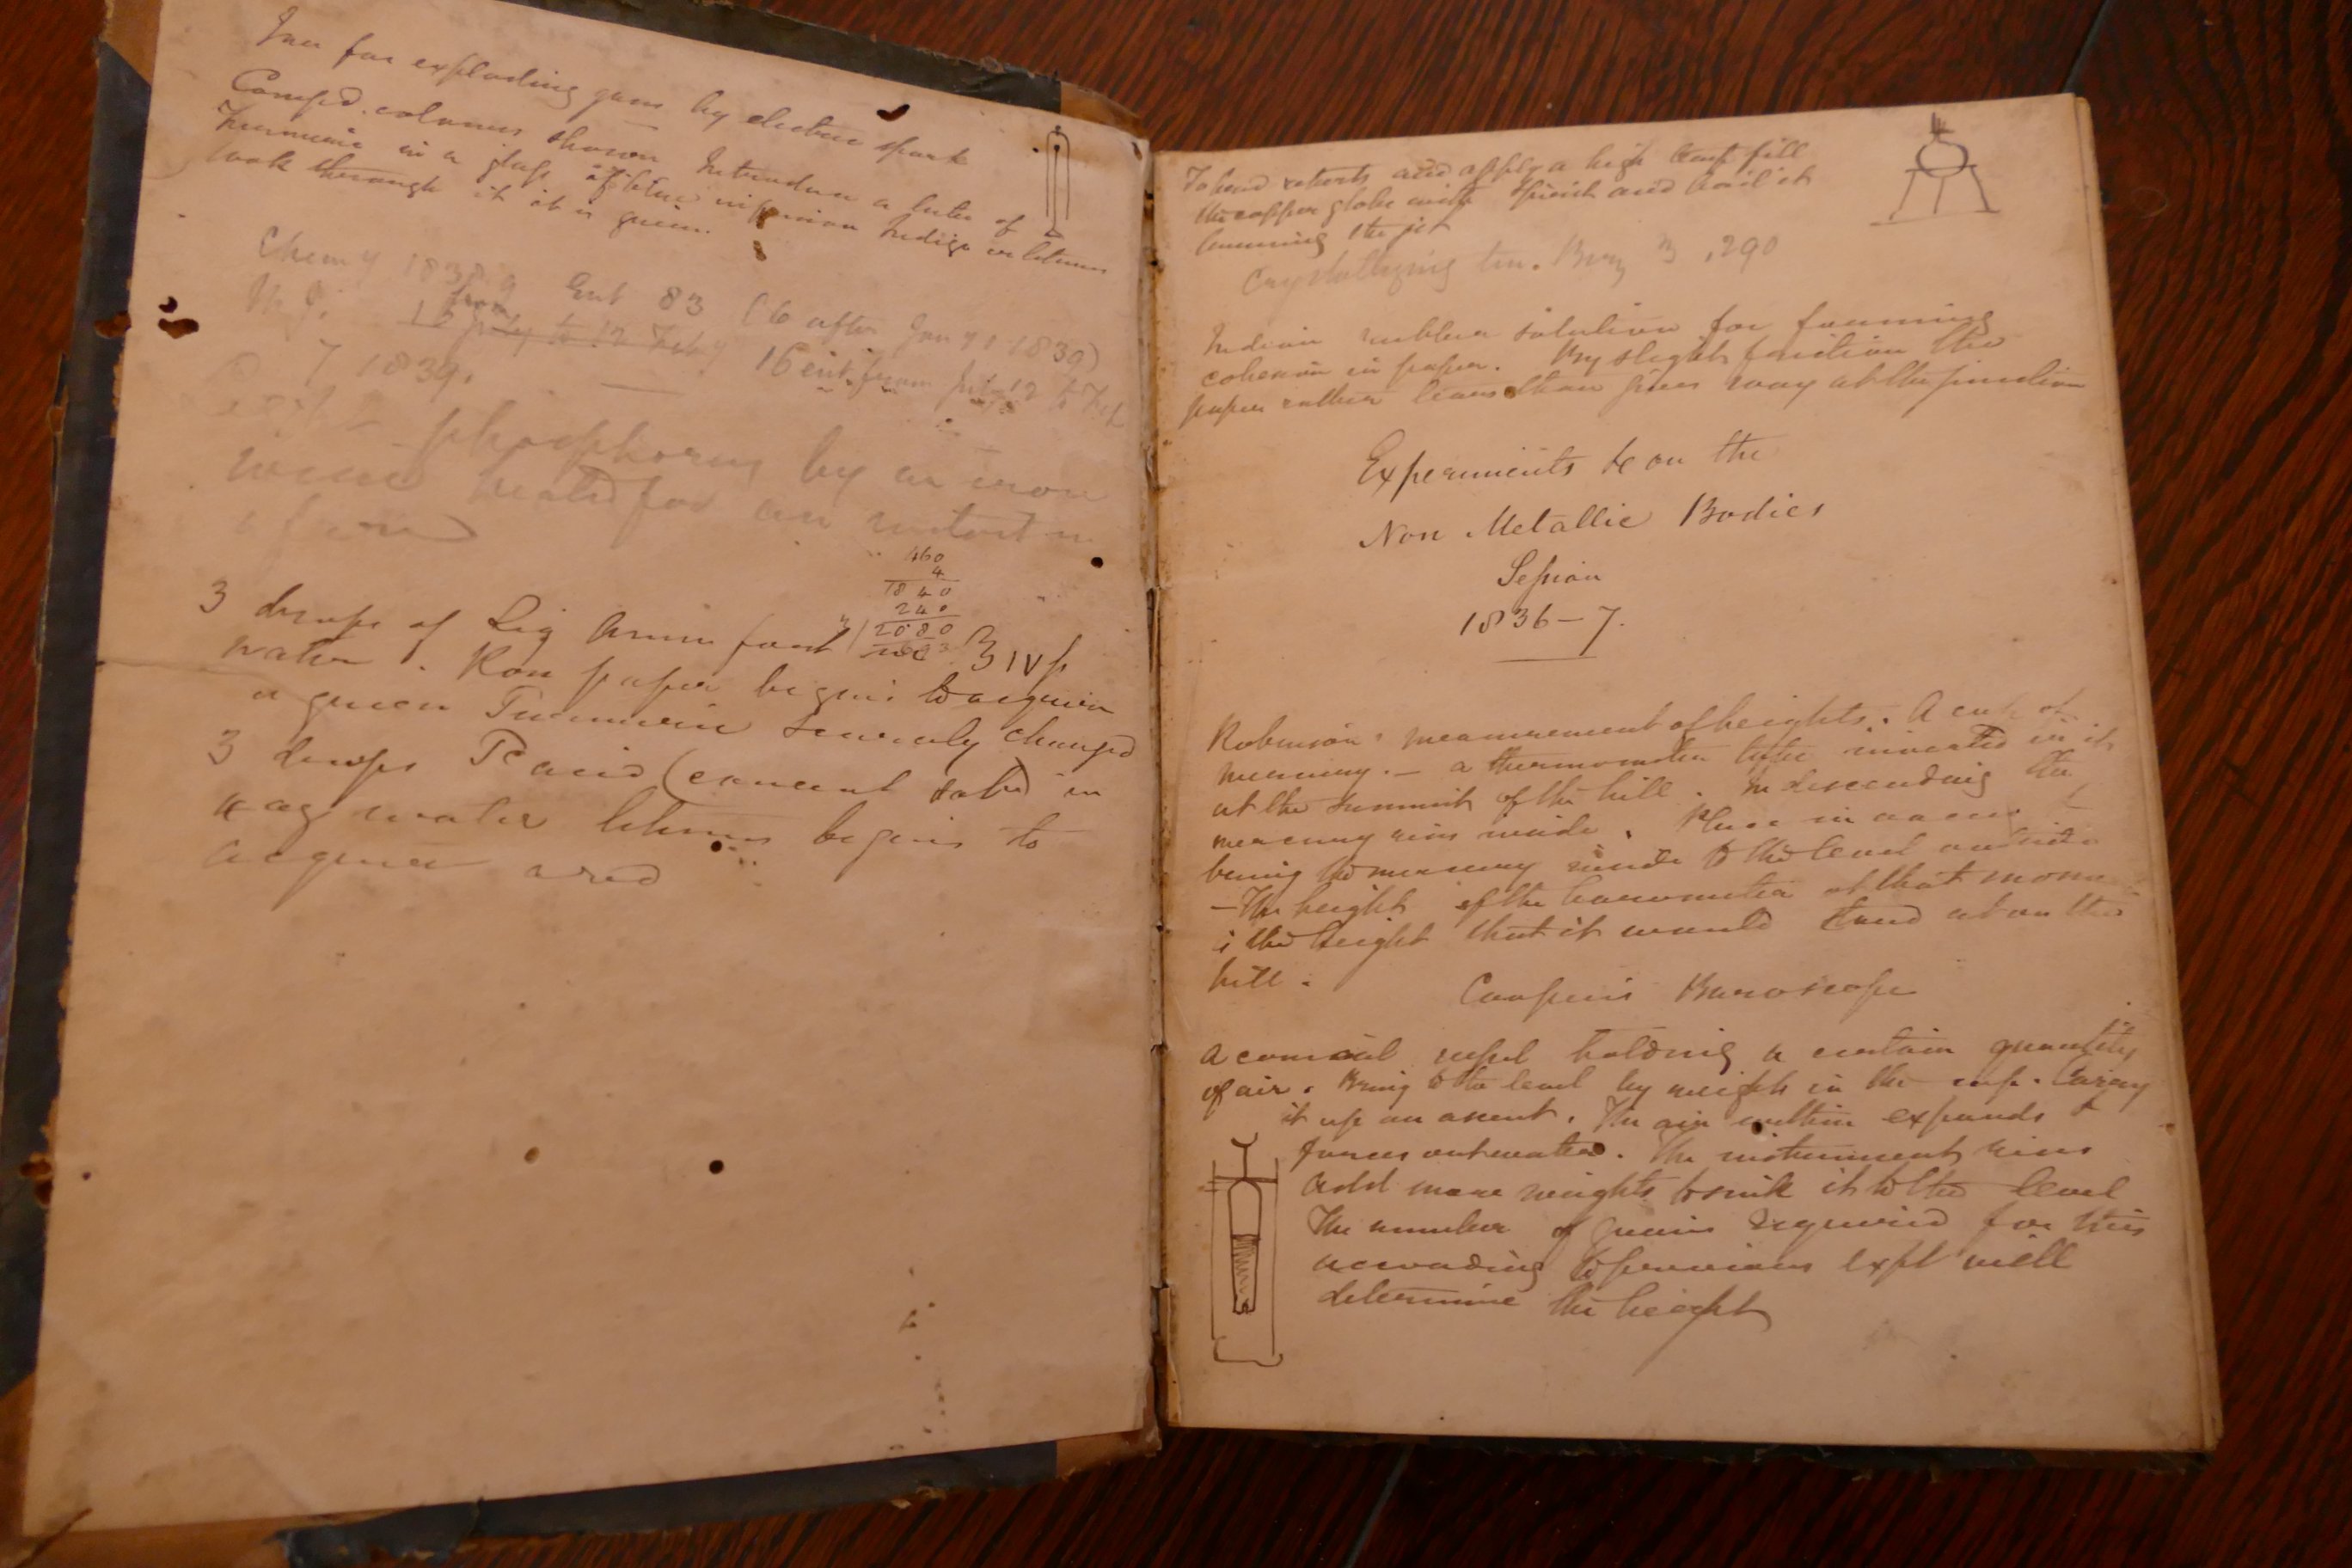 Jar for exploding gases by electric spark
Compd. colours shown Introduce a tube of
Turmeric in a glass of blue infusion Indigo or litmus
look through it it is green.
Chemy 1838-9 Ent 83 (6 after Jany 1 1839)
16 from
16 ent. from Jany 12 to Feb
7 1839.
phosphorus by an iron
wire heated for an instant in
a flame
460
4
1840
240
3 | 2080
693
3 drops of Liq Amm fort ʒ iv ſs
water. Ros paper begins to acquire
a green Turmeric scarcely changed
3 drops acid (concentrated) in
water litmus begins to
acquire a red
To bend retorts and apply a high temp fill
the copper globe with Spirit and boil it
burning the jet
Crystallizing tin. 3, 290
Indian rubber solution for forming
cohesion in paper. By slight friction the
paper rather tears than gives way at the junction
Experiments &c on the
Non Metallic Bodies
Session
1836-7.
Robinson's measurement of heights. A cup of
mercury. — a thermometer tube inverted in it
at the summit of the hill. In descending the
mercury rises inside. Place in &
bring the mercury inside to the level outside
— The height of the barometer at that mome
is the height that it would stand at on the
hill.
Cooper's Baroscope
A conical vessel holding a certain quantity
of air. Bring to the level by weights in the cup. Carry
it up an ascent. The air within expands &
forces out water. The instrument rises
Add more weights to sink it to the level
The number of grains required for this
according to previous expt will
determine the height